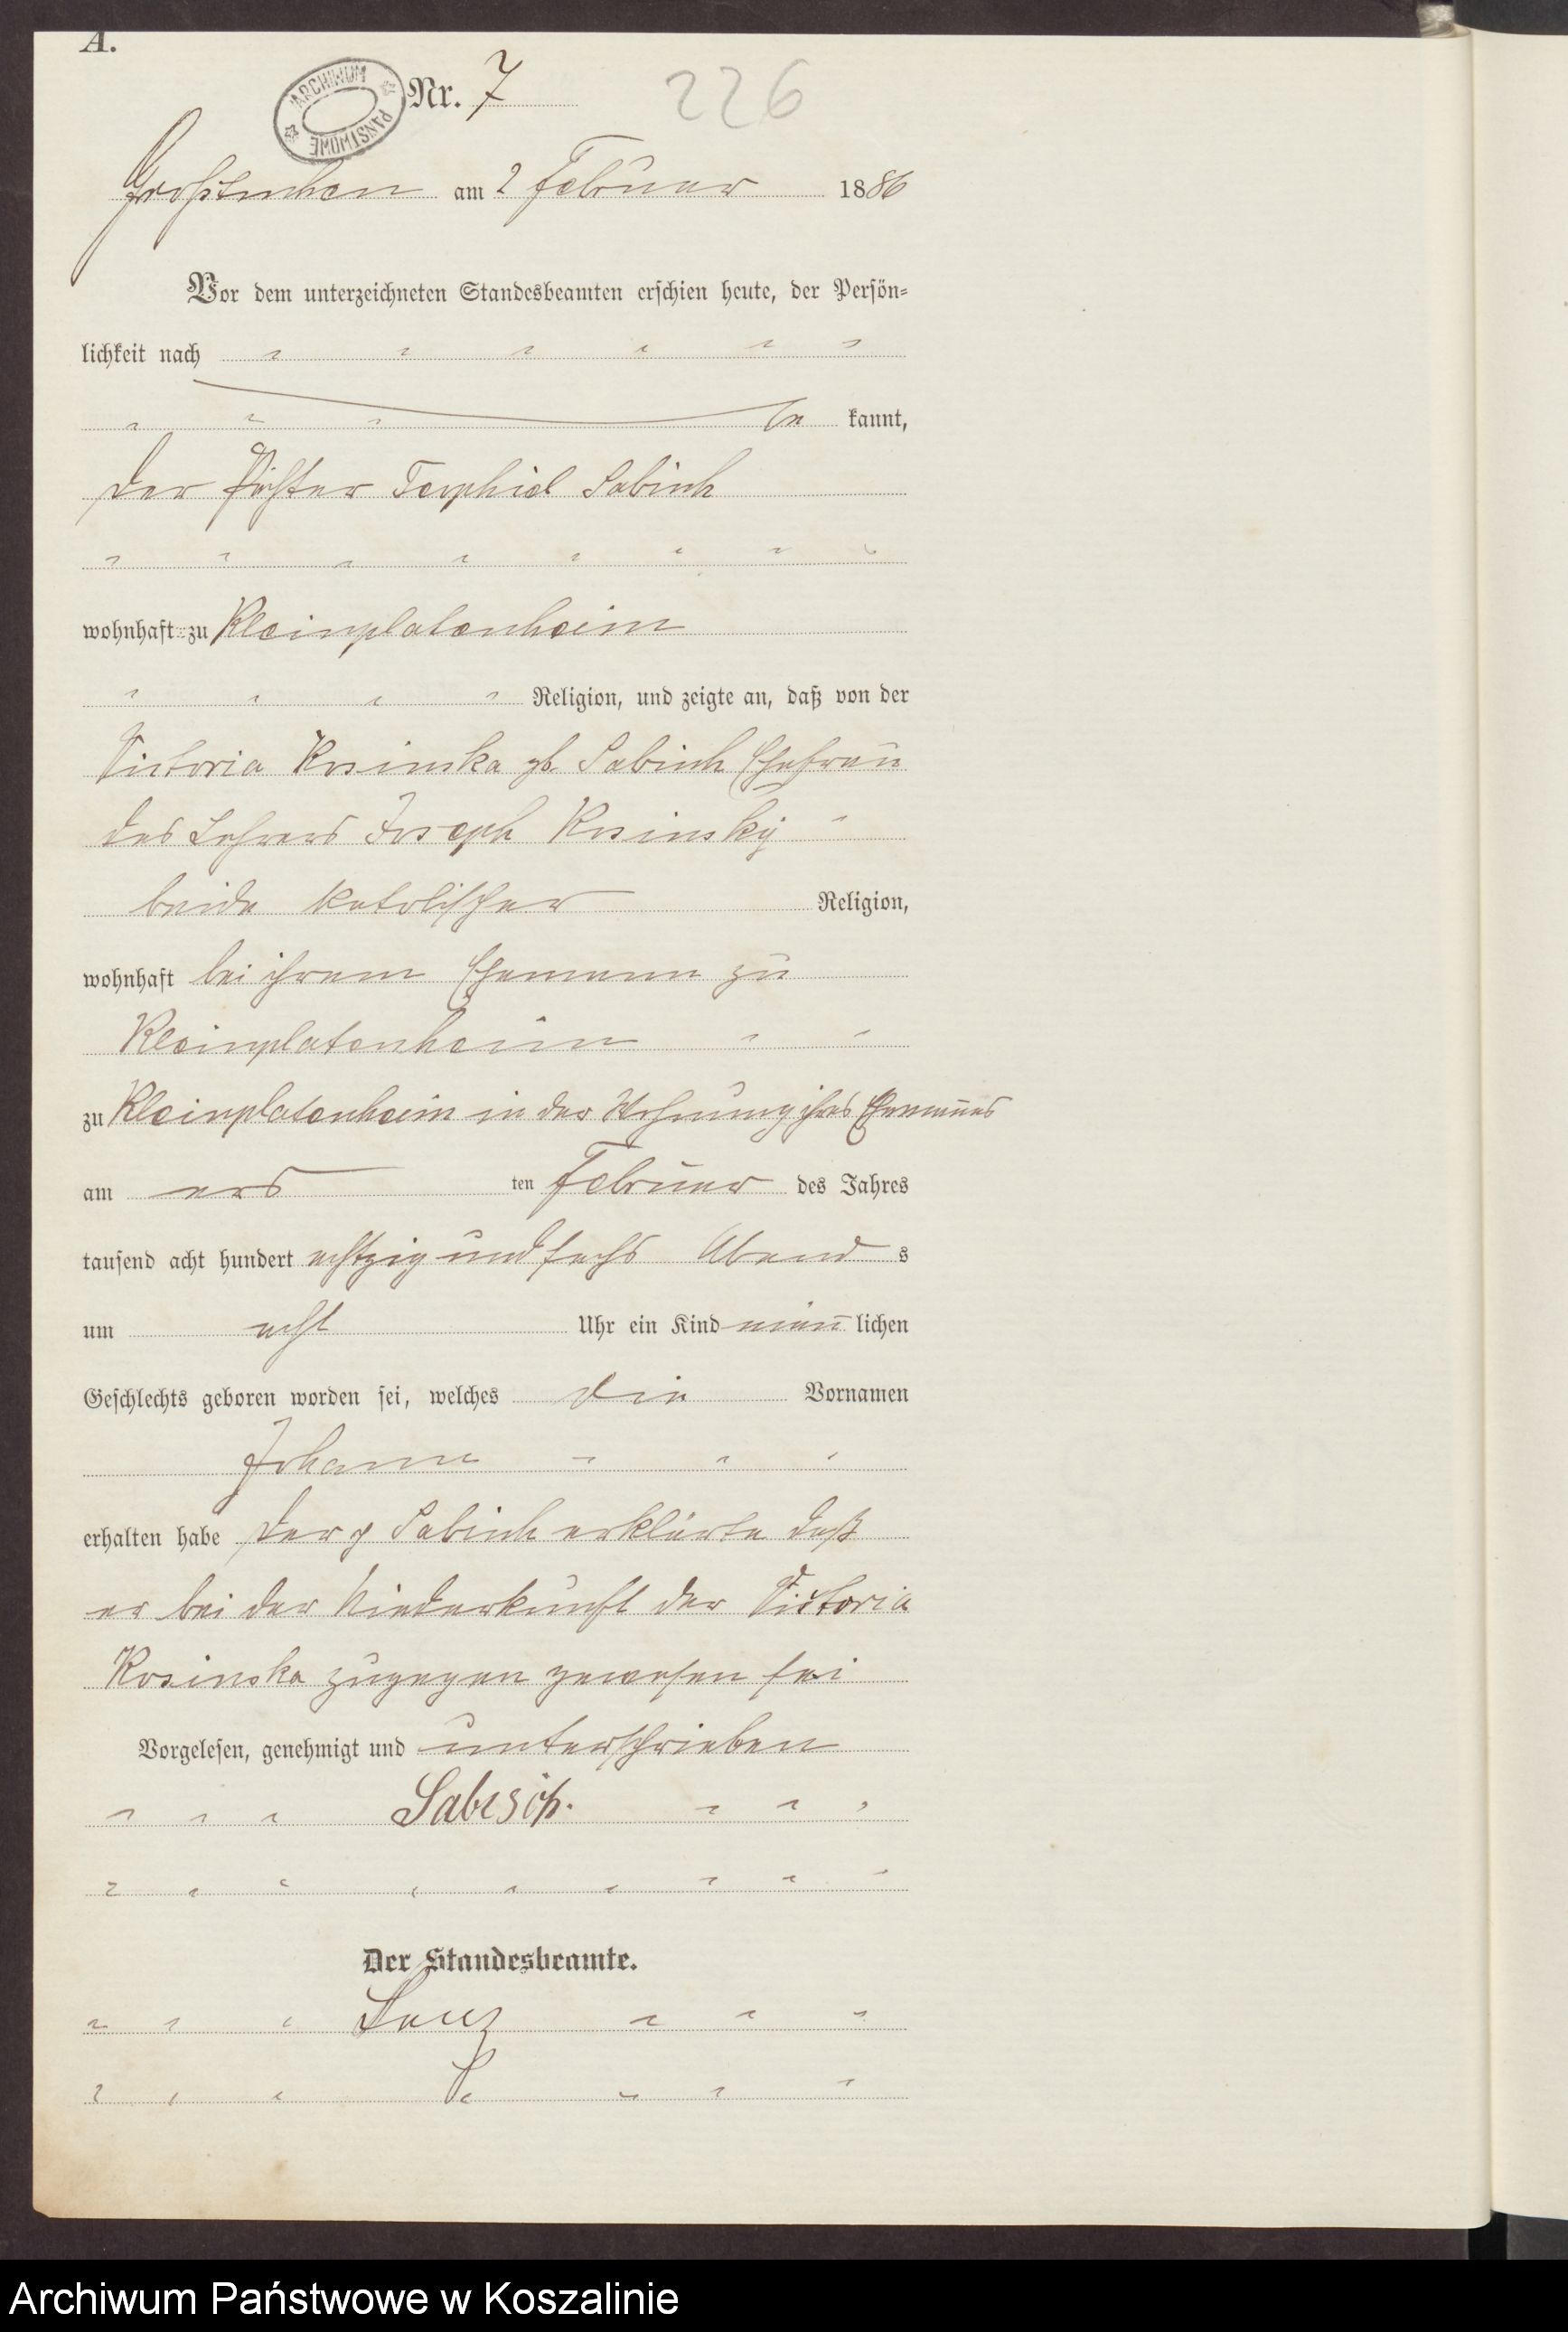 A.
ARCHIWUM PAŃSTWOWE
Nr. 7
226
Großtuchen am 2 Februar 1886
Vor dem unterzeichneten Standesbeamten erschien heute, der Persön-
lichkeit nach
be kannt,
der Teophiel Sabisch
wohnhaft zu Kleinplatenheim
Religion, und zeigte an, daß von der
Victoria Kosinska gb. Sabisch Ehefrau
des Lehrers Joseph Kosinsky
beide katolischer Religion,
wohnhaft bei ihrem Ehemann zu
Kleinplatenheim
zu Kleinplatenheim in der Wohnung ihres Ehemannes
am ers ten Februar des Jahres
tausend acht hundert achtzig und sechs Abend s
um acht Uhr ein Kind männ lichen
Geschlechts geboren worden sei, welches die Vornamen
Johann
erhalten habe der p Sabisch erklärte daß
er bei der Niederkunft der Victoria
Kosinska zugegen gewesen sei
Vorgelesen, genehmigt und unterschrieben
Sabisch.
Der Standesbeamte.
Archiwum Państwowe w Koszalinie